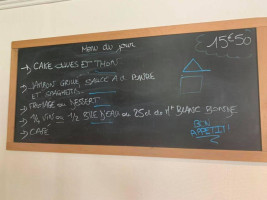 Menu du jour
15€50
→ CAKE OLIVES ET THON
→ JAMBON GRILLÉ, SAUCE À L
ET SPAGHETTI
→ FROMAGE OU DESSERT
→ 1/4 VIN OU 1/2 D'EAU OU 25cl de BLANC
→ CAFÉ
BON
APPÉTIT!